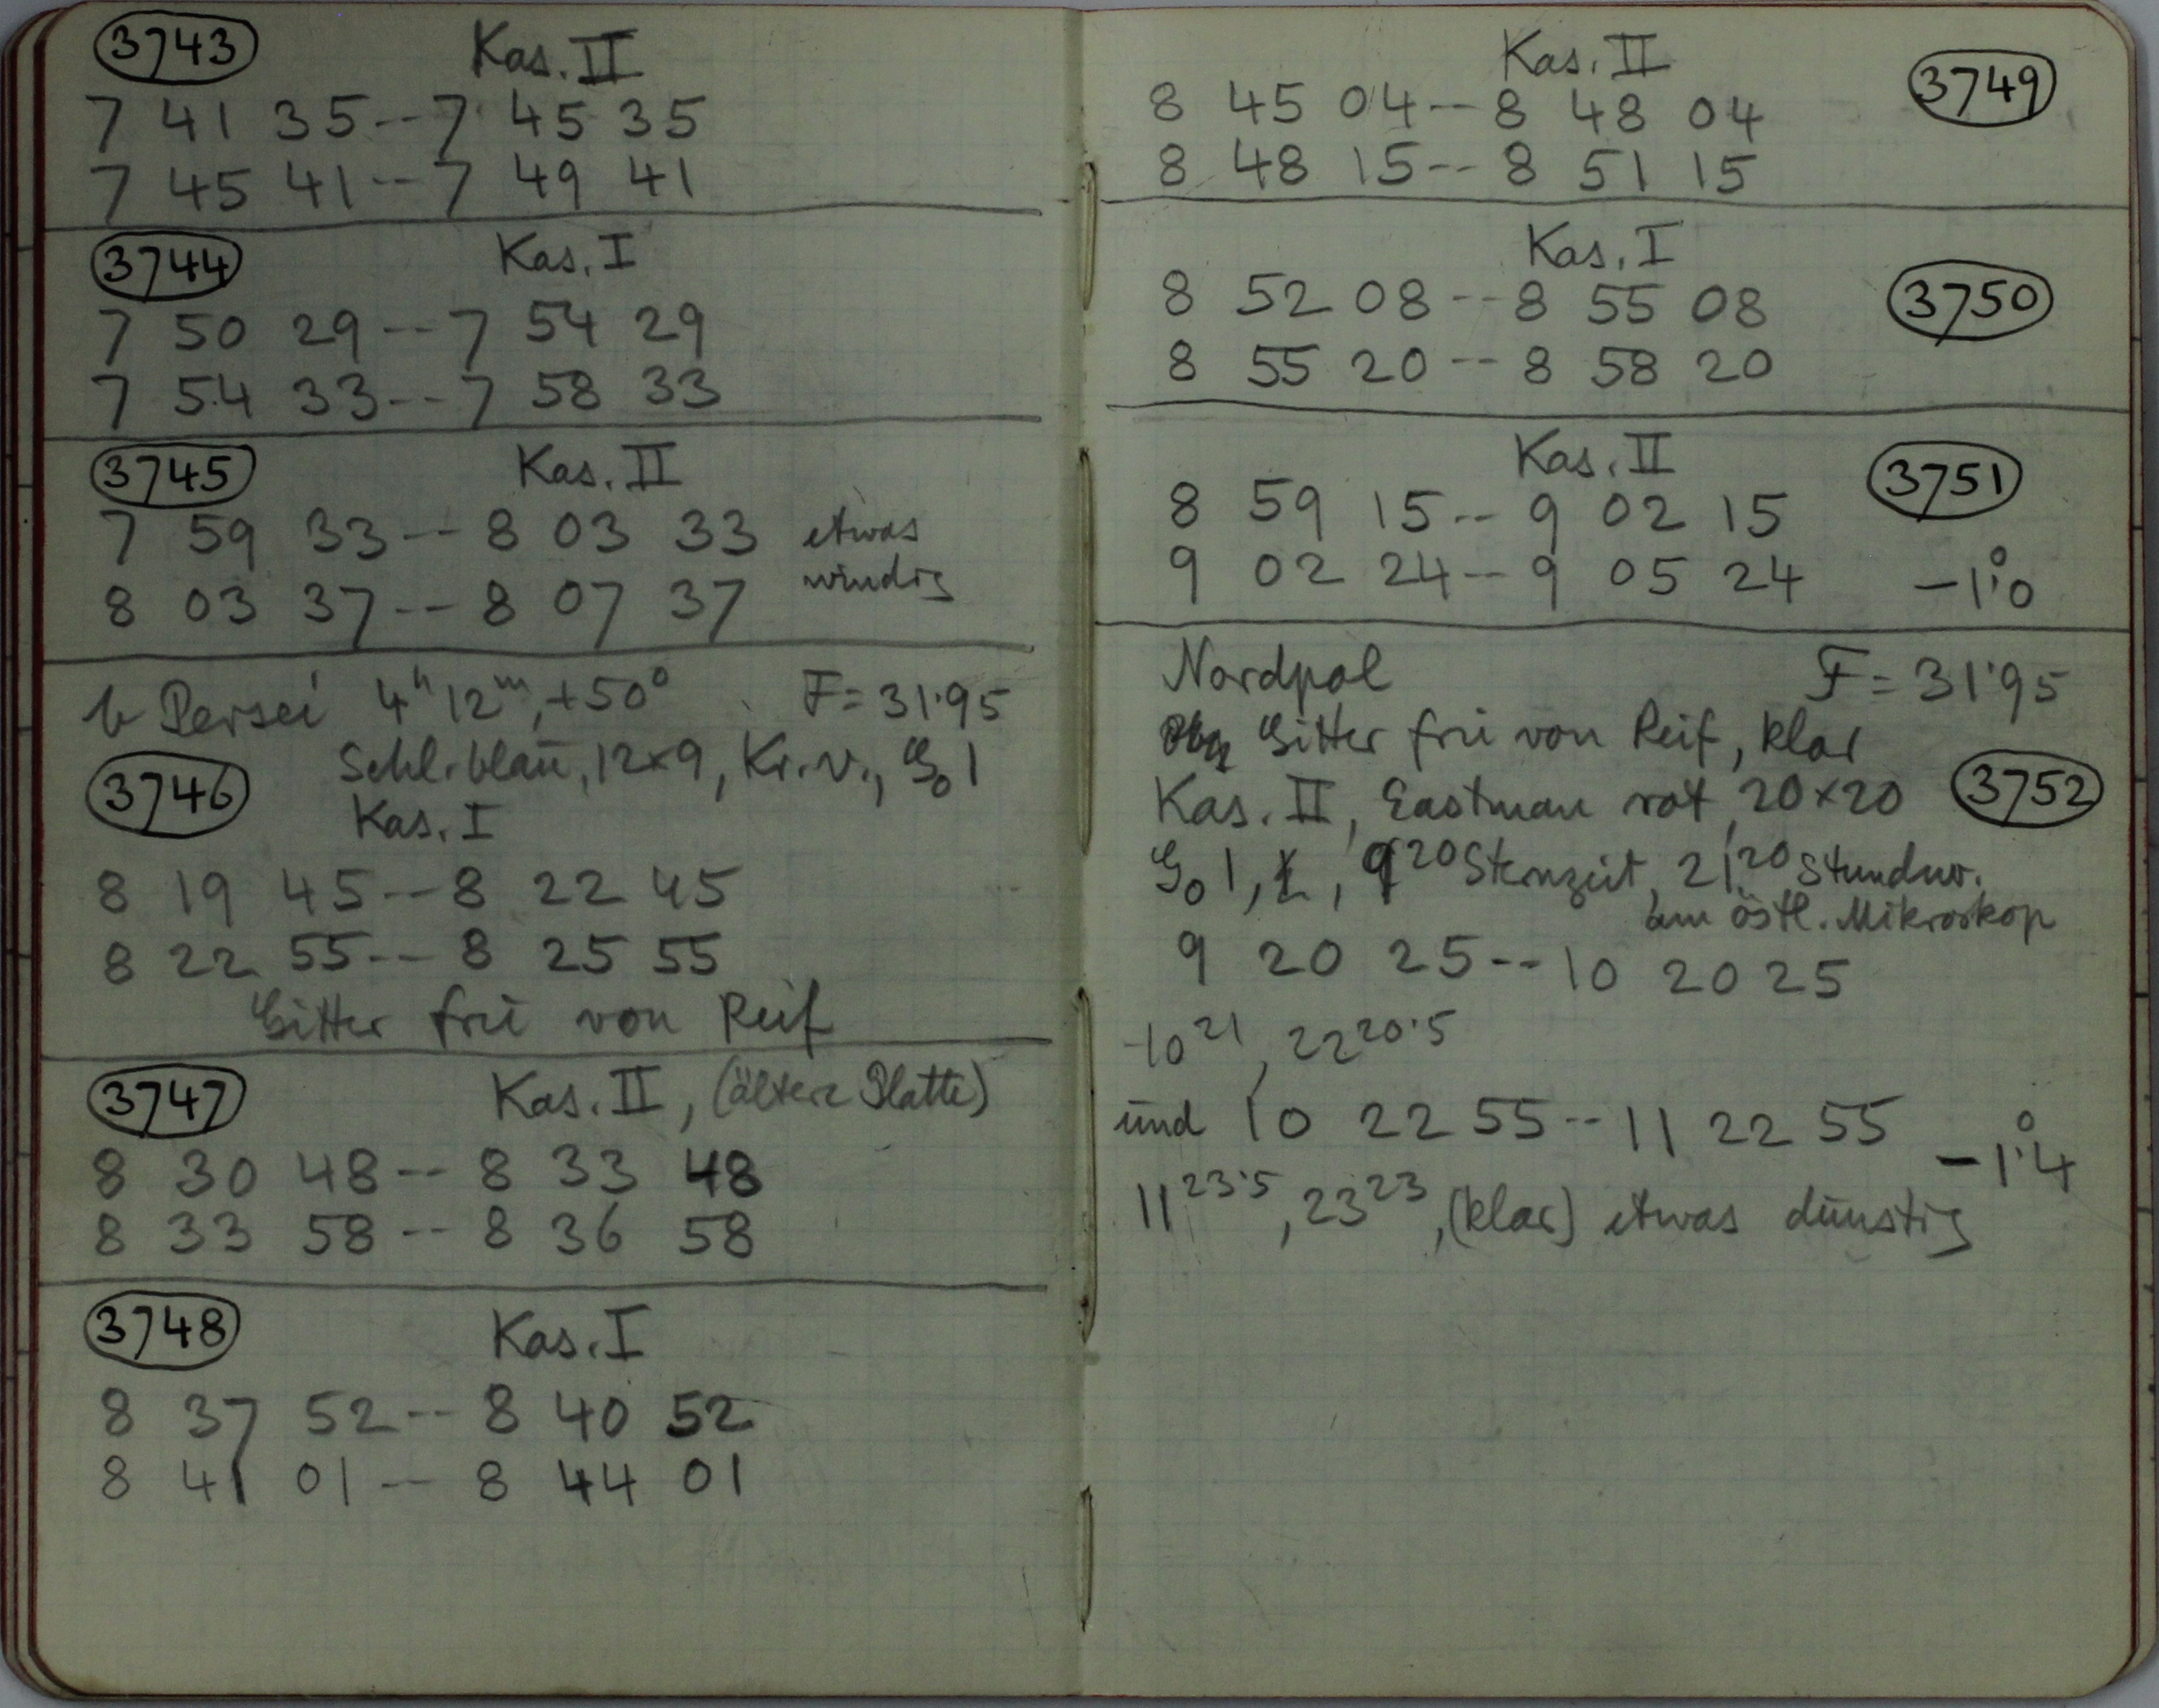 3743 Kas. II
7 41 35--7 45 35
7 45 41--7 49 41
3744 Kas. I
7 50 29--7 54 29
7 54 33--7 58 33
3745 Kas. II
7 59 33--8 03 33 etwas
8 03 37--8 07 37 windig
b Persei 4ʰ12ᵐ,+50° F=31.95
Schl. blau, 12×9, Kr. v., G₀ 1
3746 Kas. I
8 19 45--8 22 45
8 22 55--8 25 55
Gitter frei von Reif
3747 Kas. II, (ältere Platte)
8 30 48--8 33 48
8 33 58--8 36 58
3748 Kas. I
8 37 52--8 40 52
8 41 01--8 44 01
Kas. II 3749
8 45 04--8 48 04
8 48 15--8 51 15
Kas. I 3750
8 52 08--8 55 08
8 55 20--8 58 20
Kas. II 3751
8 59 15--9 02 15
9 02 24--9 05 24 -1°.0
Nordpol F=31.95
Gitter frei von Reif, klar
Kas. II, Eastman rot, 20×20 3752
G₀ 1, 9²⁰ Sternzeit, 21²⁰ Stundw.
am östl. Mikroskop
9 20 25--10 20 25
10²¹, 22²⁰·⁵
und 10 22 55--11 22 55 -1°.4
11²³·⁵, 23²³, (klar) etwas dunstig